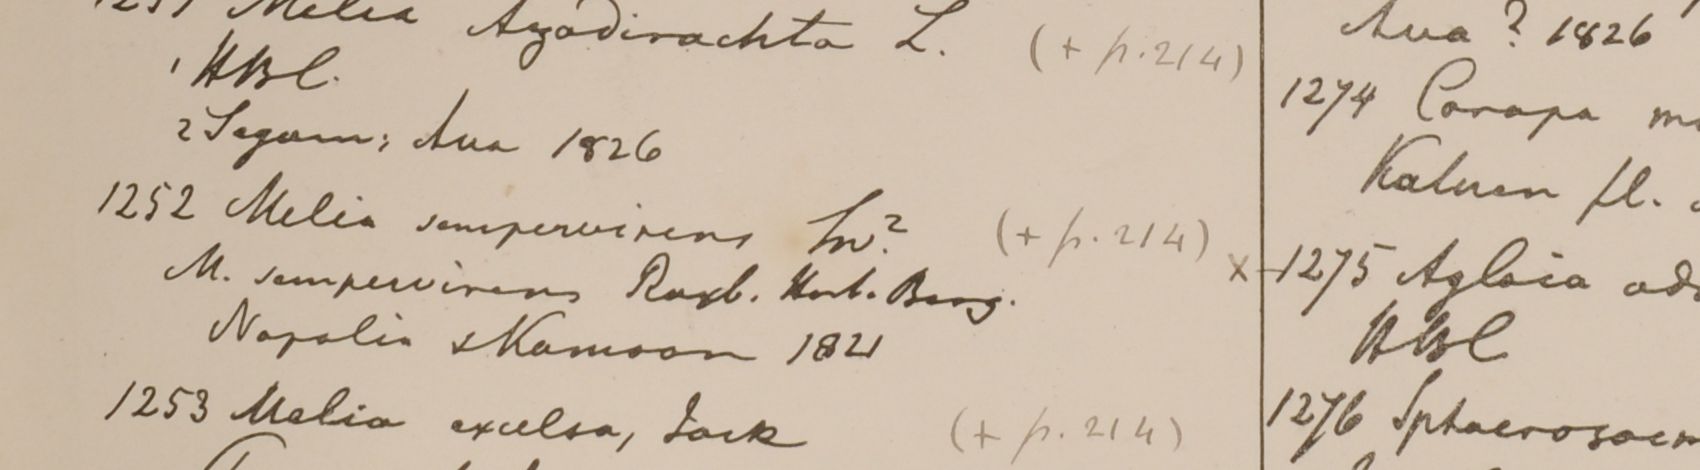 1251 Melia Azadirachta L. (+ p. 214)
1 HBC.
2 Segam; Ava 1826
1252 Melia sempervirens Sw? (+ p. 214)
M. sempervirens Roxb. Hort. Beng.
Napalia & Kamoon 1821
1253 Melia excelsa, Jack (+ p. 214)
Ava? 1826
1274 Carapa
Katuen fl.
x 1275 Aglaia
HBC
1276